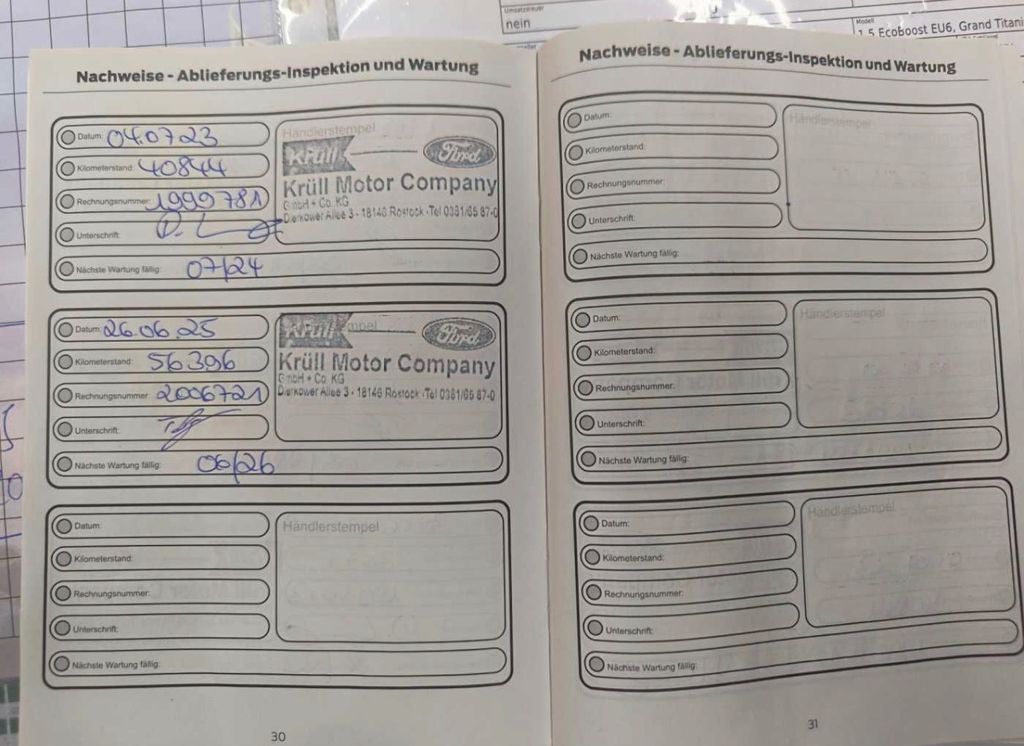 Umsatzsteuer
nein
Modell
1.5 Ecoboost EU6, Grand Titani
Nachweise - Ablieferungs-Inspektion und Wartung
Datum: 04.07 23
Kilometerstand: 40844
Rechnungsnummer: 1999781
Unterschrift:
Nächste Wartung fällig: 07/24
Händlerstempel
Krüll Ford
Krüll Motor Company
GmbH + Co. KG
Dierkower Allee 3 - 18146 Rostock - Tel 0381/65 87-0
Datum: 26.06.25
Kilometerstand: 56396
Rechnungsnummer: 2006721
Unterschrift:
Nächste Wartung fällig: 06/26
Krüll mpel Ford
Krüll Motor Company
GmbH + Co. KG
Dierkower Allee 3 - 18146 Rostock - Tel 0381/65 87-0
Datum:
Kilometerstand:
Rechnungsnummer:
Unterschrift:
Nächste Wartung fällig:
Händlerstempel
30
Nachweise - Ablieferungs-Inspektion und Wartung
Datum:
Kilometerstand:
Rechnungsnummer:
Unterschrift:
Nächste Wartung fällig:
Händlerstempel
Datum:
Kilometerstand:
Rechnungsnummer:
Unterschrift:
Nächste Wartung fällig:
Händlerstempel
Datum:
Kilometerstand:
Rechnungsnummer:
Unterschrift:
Nächste Wartung fällig:
Händlerstempel
31